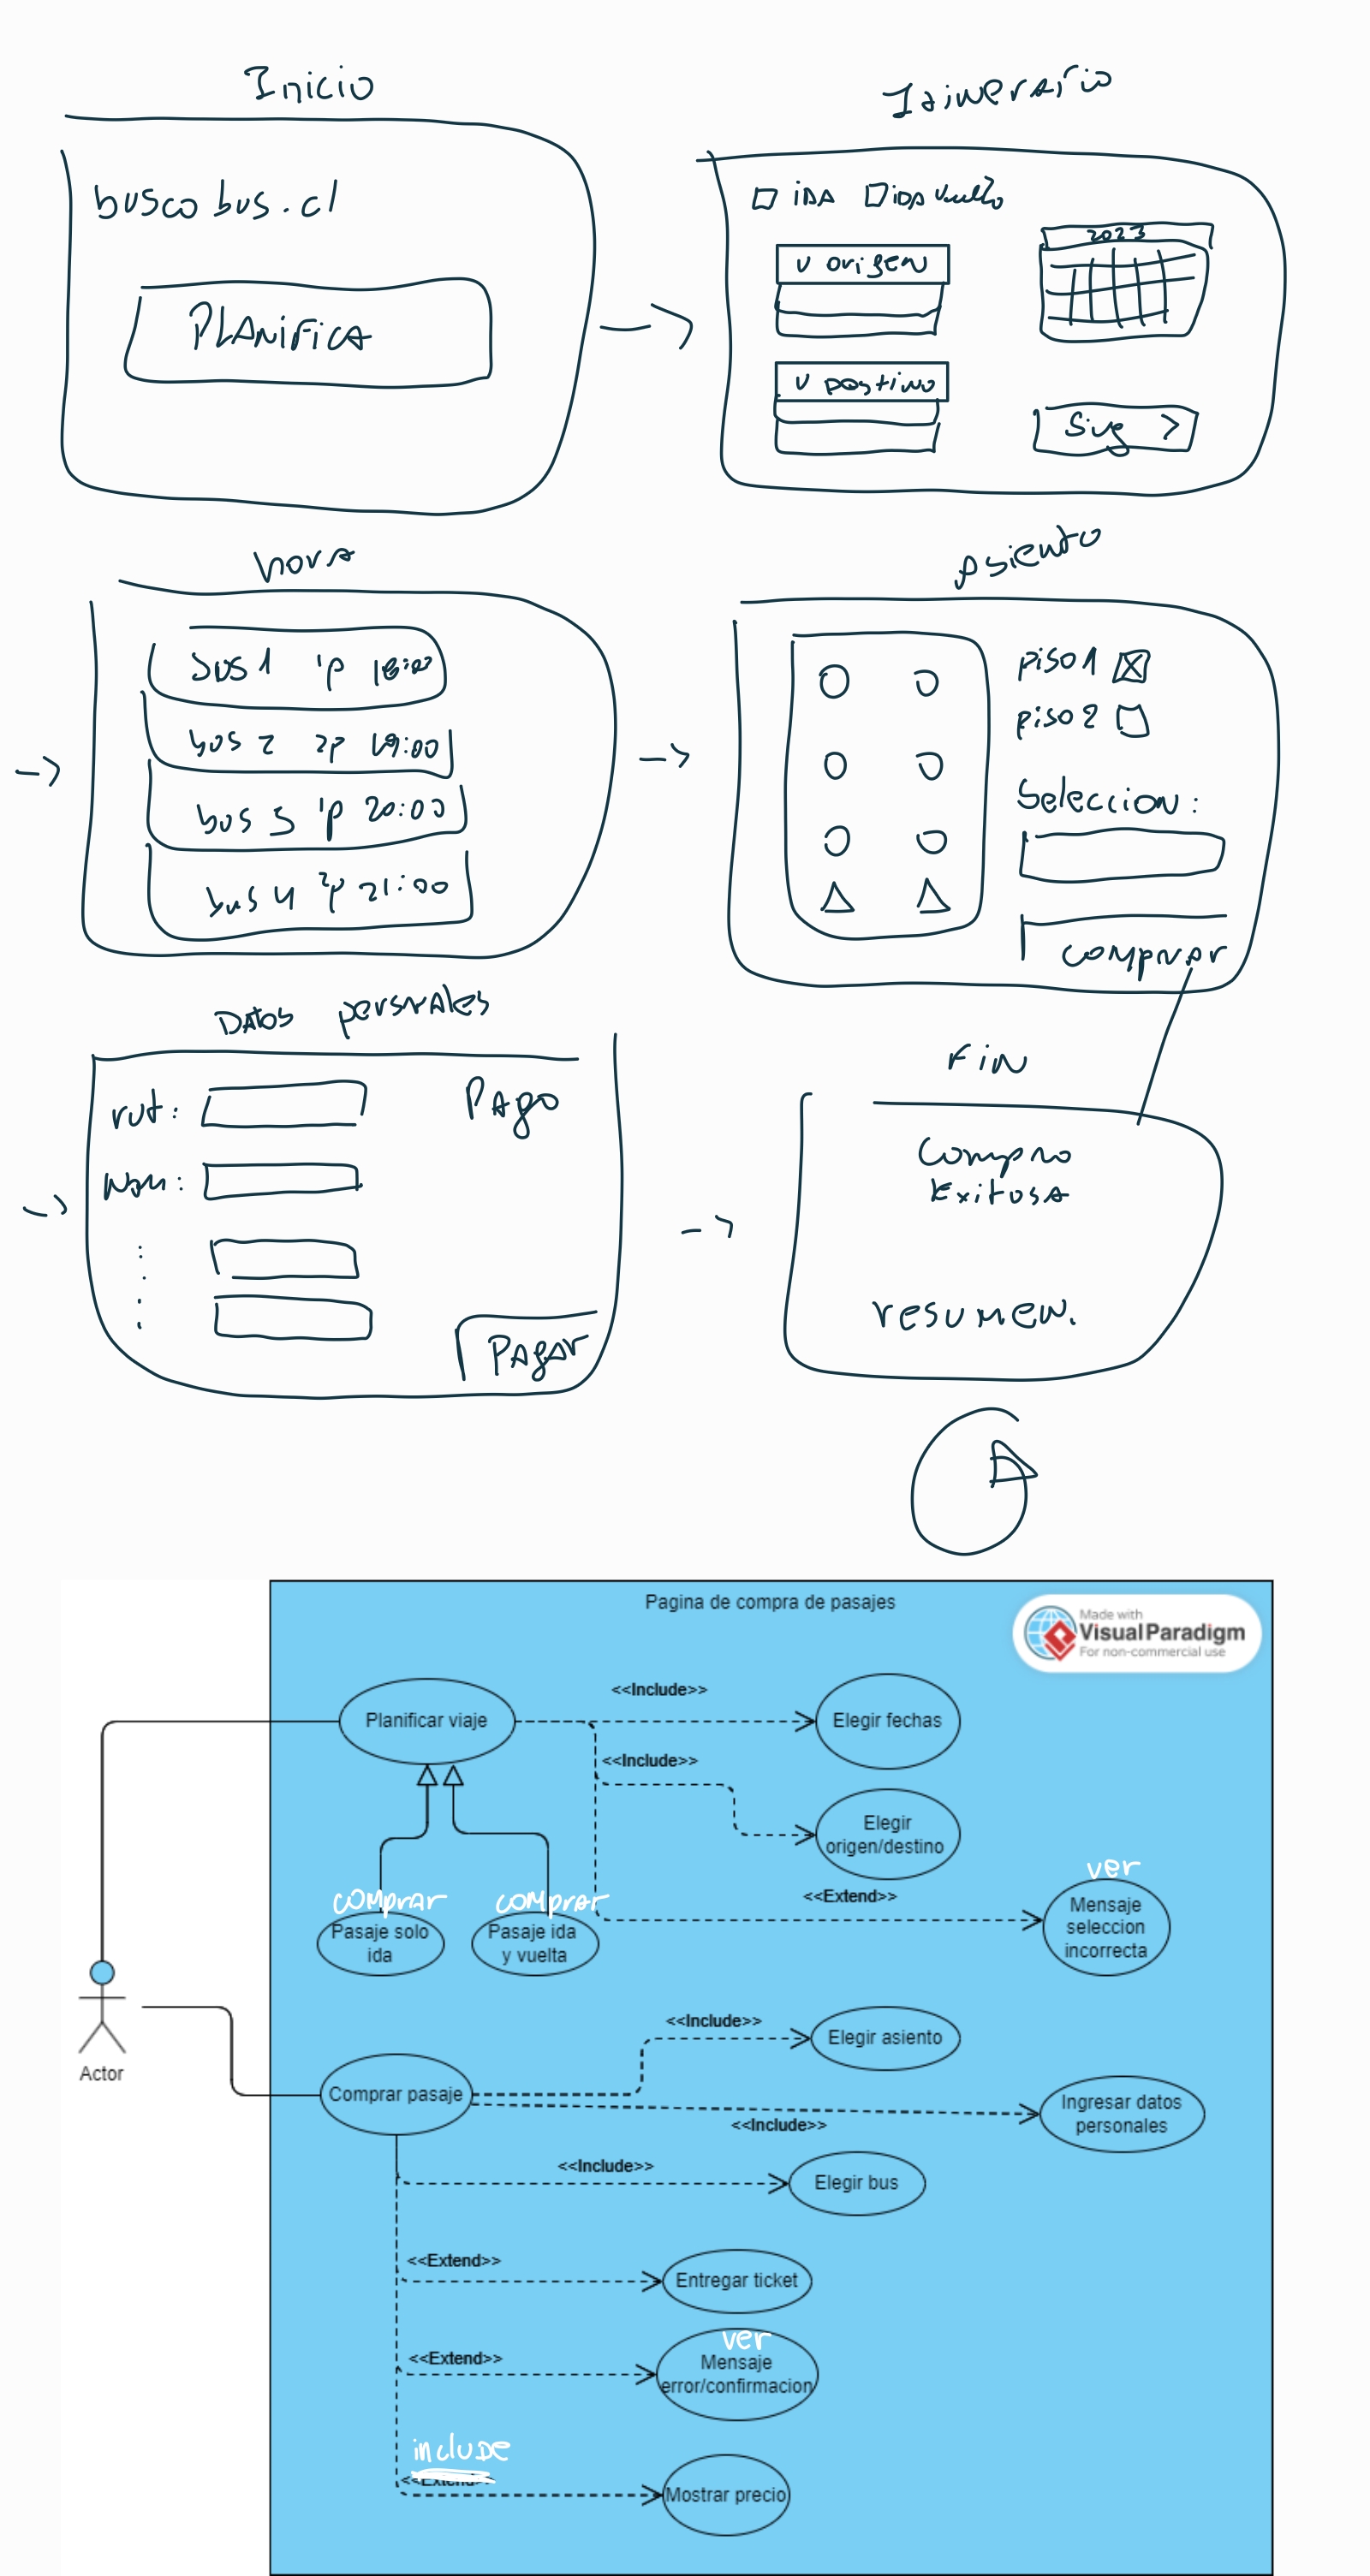 Inicio
Itinerario
busco bus.cl
PLANIFICA
IDA IDA vuelta
v origen
v Destino
2023
Sig >
hora
Asiento
bus 1 1p 18:00
bus 2 2p 19:00
bus 3 1p 20:00
bus 4 2p 21:00
piso 1
piso 2
Seleccion:
comprar
Datos personales
rut:
Nom:
Pago
Pagar
Fin
Compra
Exitosa
resumen.
Pagina de compra de pasajes
Made with
VisualParadigm
For non-commercial use
Planificar viaje
<<Include>>
Elegir fechas
<<Include>>
Elegir
origen/destino
comprar
Pasaje solo
ida
comprar
Pasaje ida
y vuelta
<<Extend>>
ver
Mensaje
seleccion
incorrecta
Actor
Comprar pasaje
<<Include>>
Elegir asiento
<<Include>>
Ingresar datos
personales
<<Include>>
Elegir bus
<<Extend>>
Entregar ticket
<<Extend>>
ver
Mensaje
error/confirmacion
include
<<Extend>>
Mostrar precio